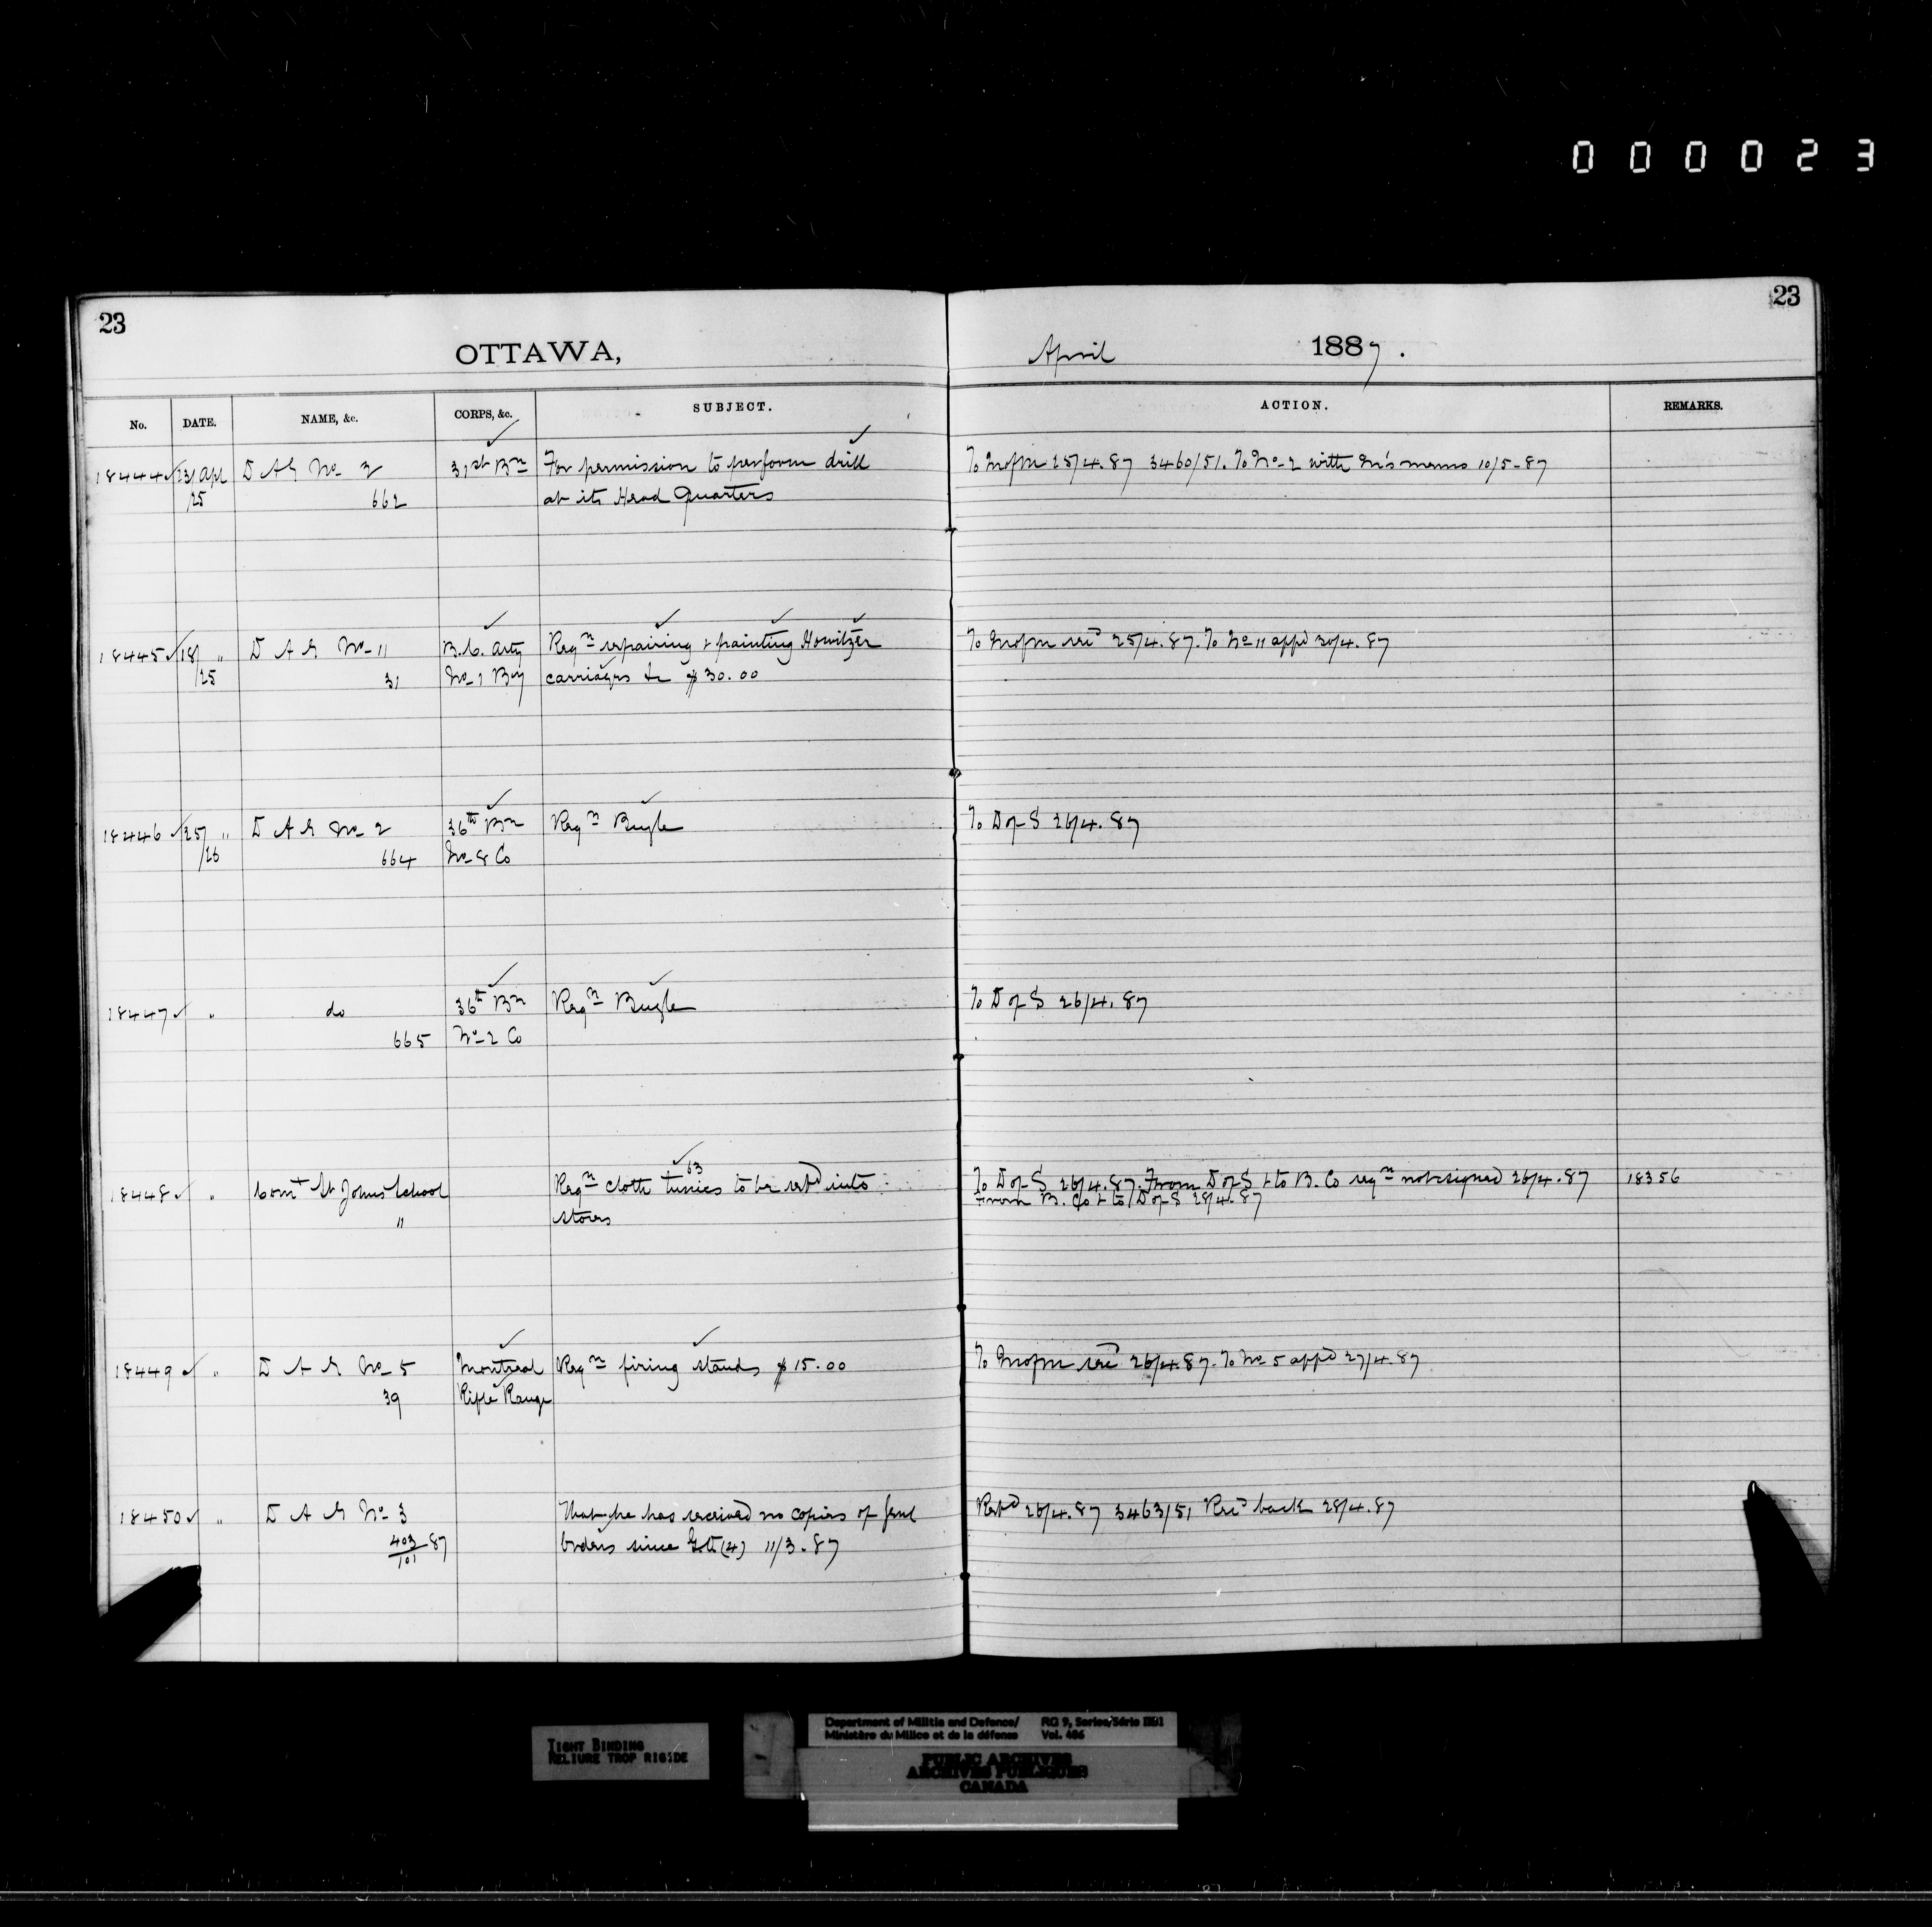 000023
23
23
OTTAWA,
April 1887.
No. DATE. NAME, &c. CORPS, &c. SUBJECT. ACTION. REMARKS.
18444 23/ Apl D A G No 2 31st Bn For permission to perform drill To MofM 25/4.87 3460/51. To No-2 with M's memo 10/5-87
/25 662 at its Head Quarters
18445 18/ " D A G No-11 B.C. Arty Reqn repairing & painting Howitzer To MofM rec'd 25/4.87. To No 11 app'd 30/4.87
/25 31 No-1 By carriages &c $30.00
18446 25/ " D A G No 2 36th Bn Reqn Bugle To D of S 26/4.87
/26 664 No-8 Co
18447 " do 36th Bn Reqn Bugle To D of S 26/4.87
665 No-2 Co
18448 " Comt St Johns School Reqn 63 cloth tunics to be retd into To D of S 26/4.87. From D of S & to B. Co reqn not signed 26/4.87 18356
" stores From B. Co & to D of S 28/4.87
18449 " D A G No-5 Montreal Reqn firing stands $15.00 To MofM rec'd 26/4.87. To No 5 app'd 27/4.87
39 Rifle Range
18450 " D A G No 3 That he has received no copies of Genl Retd 26/4.87 3463/51 Recd back 28/4.87
403/101 87 Orders since (4) 11/3.87
TIGHT BINDING
RELIURE TROP RIGIDE
Department of Militia and Defence/ RG 9, Series/Série
Ministère du Milice et de la défense Vol. 486
PUBLIC ARCHIVES
ARCHIVES PUBLIQUES
CANADA